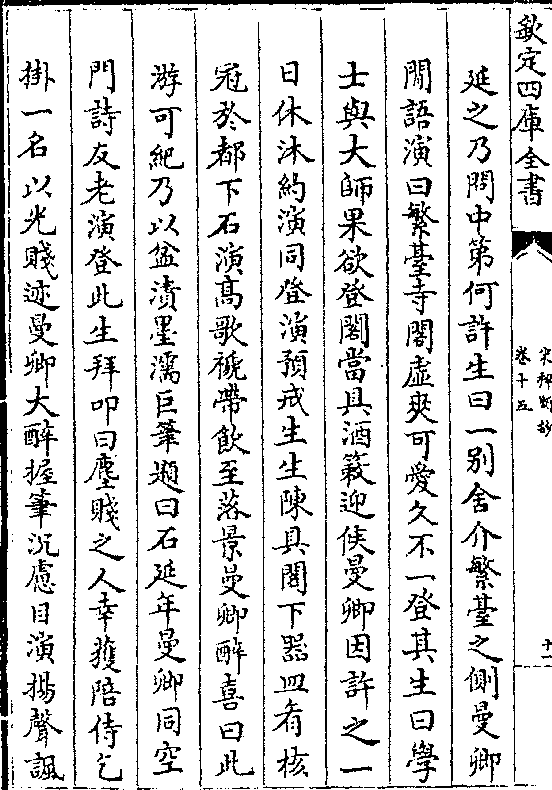 欽定四庫全書
宋稗類鈔
卷十五
十一
延之乃問中第何許生曰一别舍介繁臺之側曼卿
閒語演曰繁臺寺閣虚爽可愛久不一登其生曰學
士與大師果欲登閣當具酒簌迎候曼卿因許之一
日休沐約演同登演預戒生生陳具閣下器皿肴核
冠於都下石演髙歌褫帶飲至落景曼卿醉喜曰此
游可紀乃以盆漬墨濡巨筆題曰石延年曼卿同空
門詩友老演登此生拜叩曰塵賤之人幸獲陪侍乞
掛一名以光賤迹曼卿大醉握筆沉慮目演揚聲諷